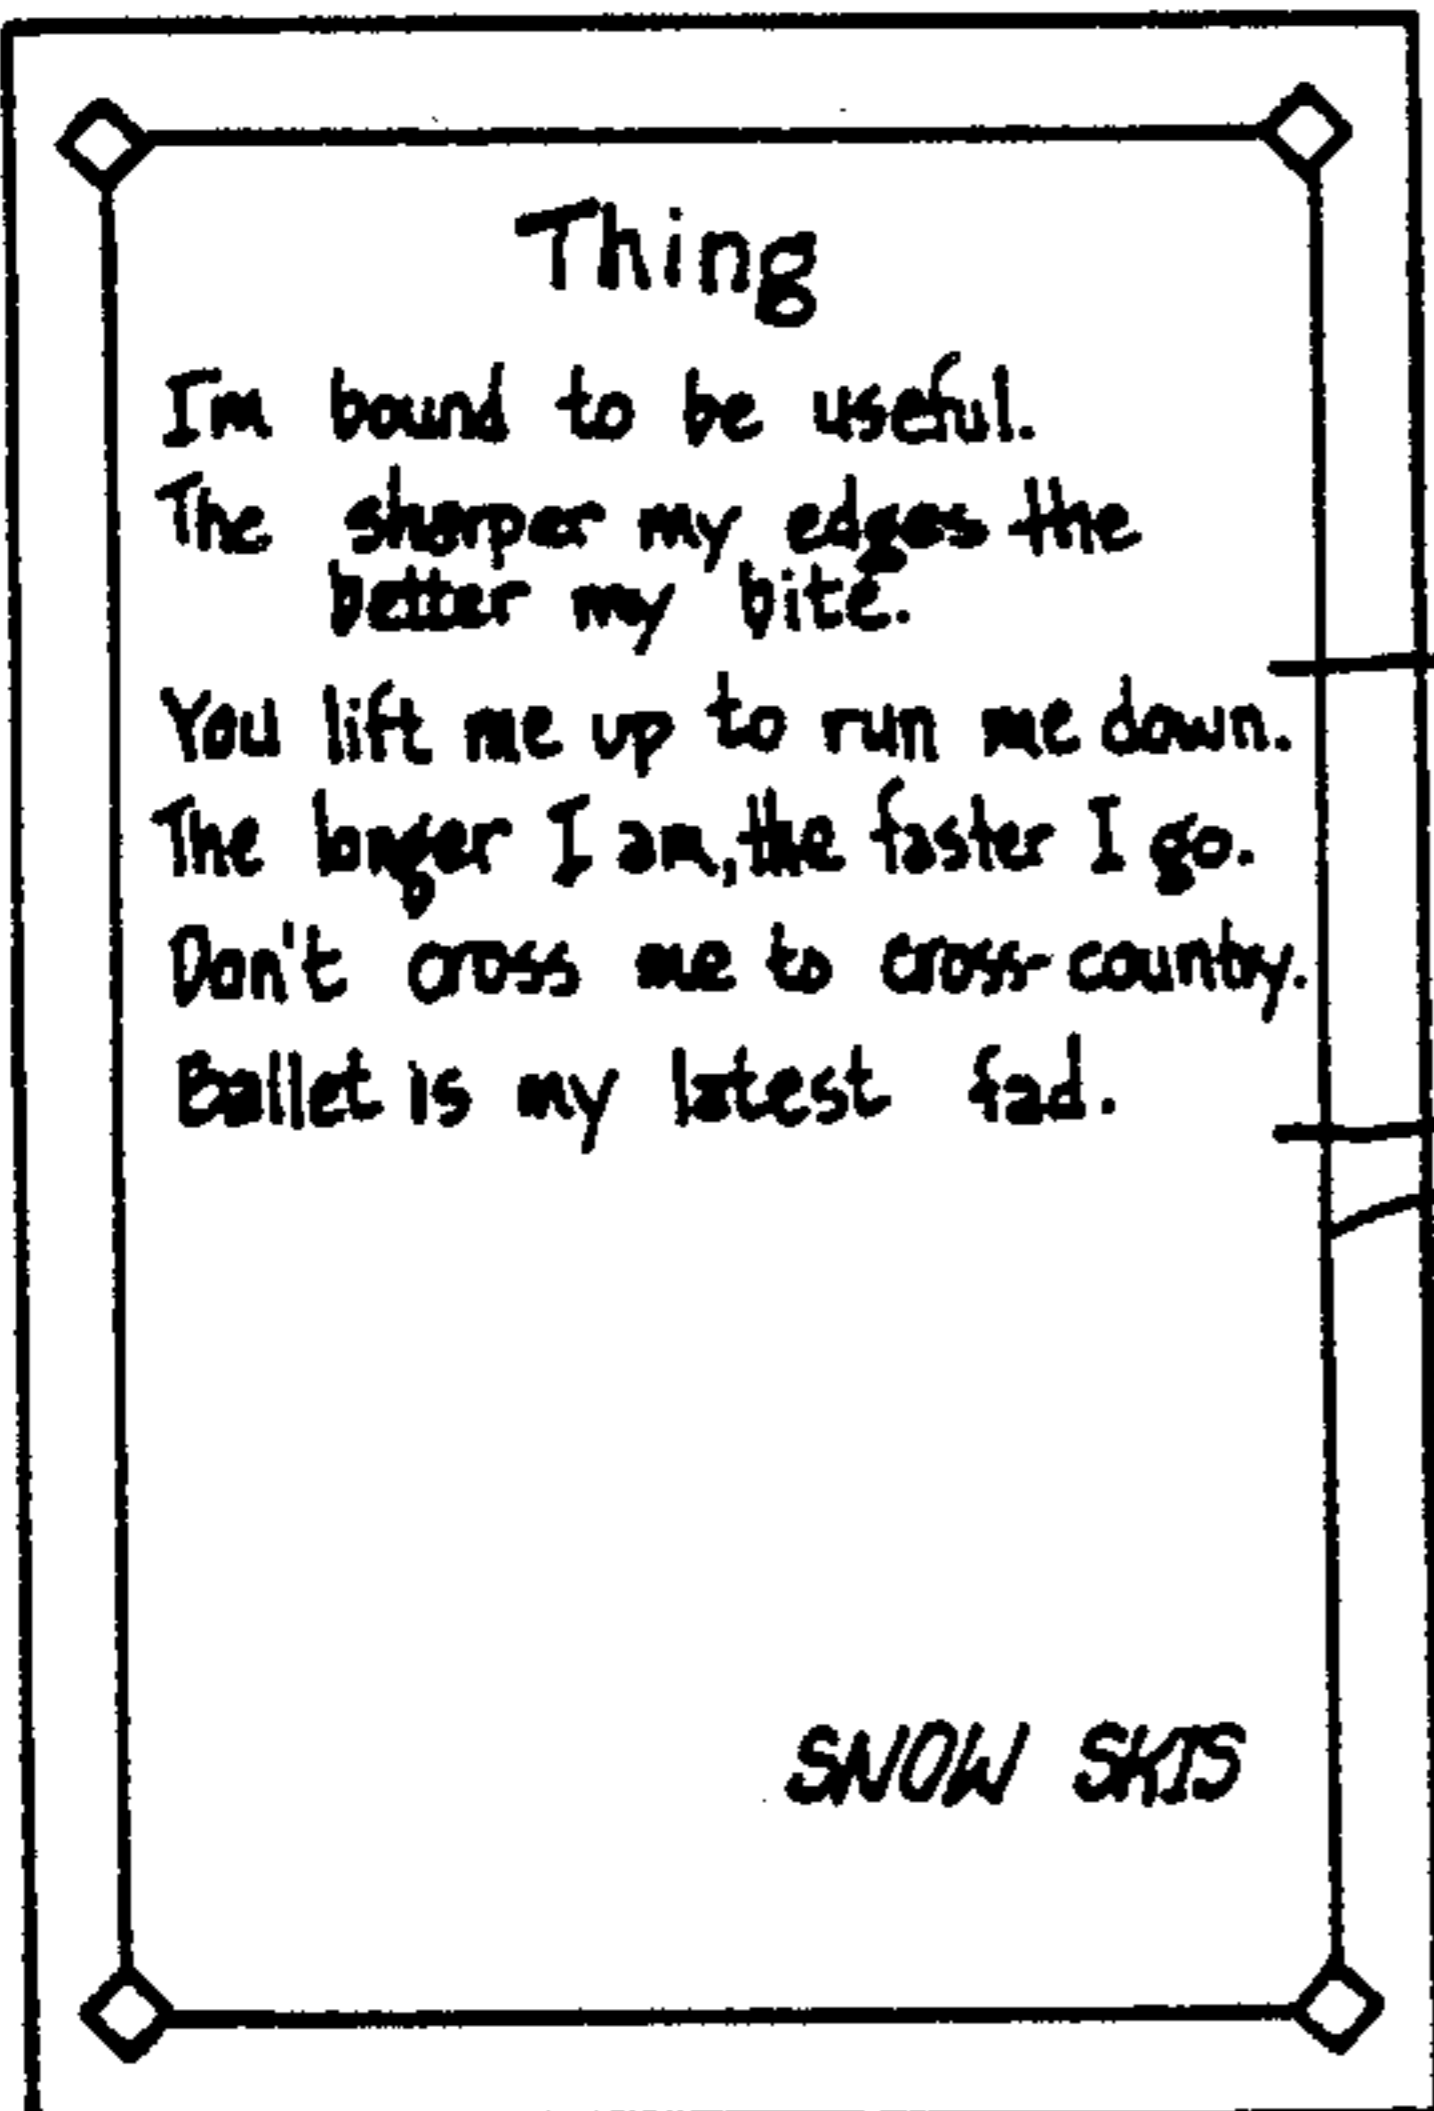 Thing
I'm bound to be useful.
The sharper my edges the
better my bite.
You lift me up to run me down.
The longer I am, the faster I go.
Don't cross me to cross-country.
Ballet is my latest fad.
SNOW SKIS